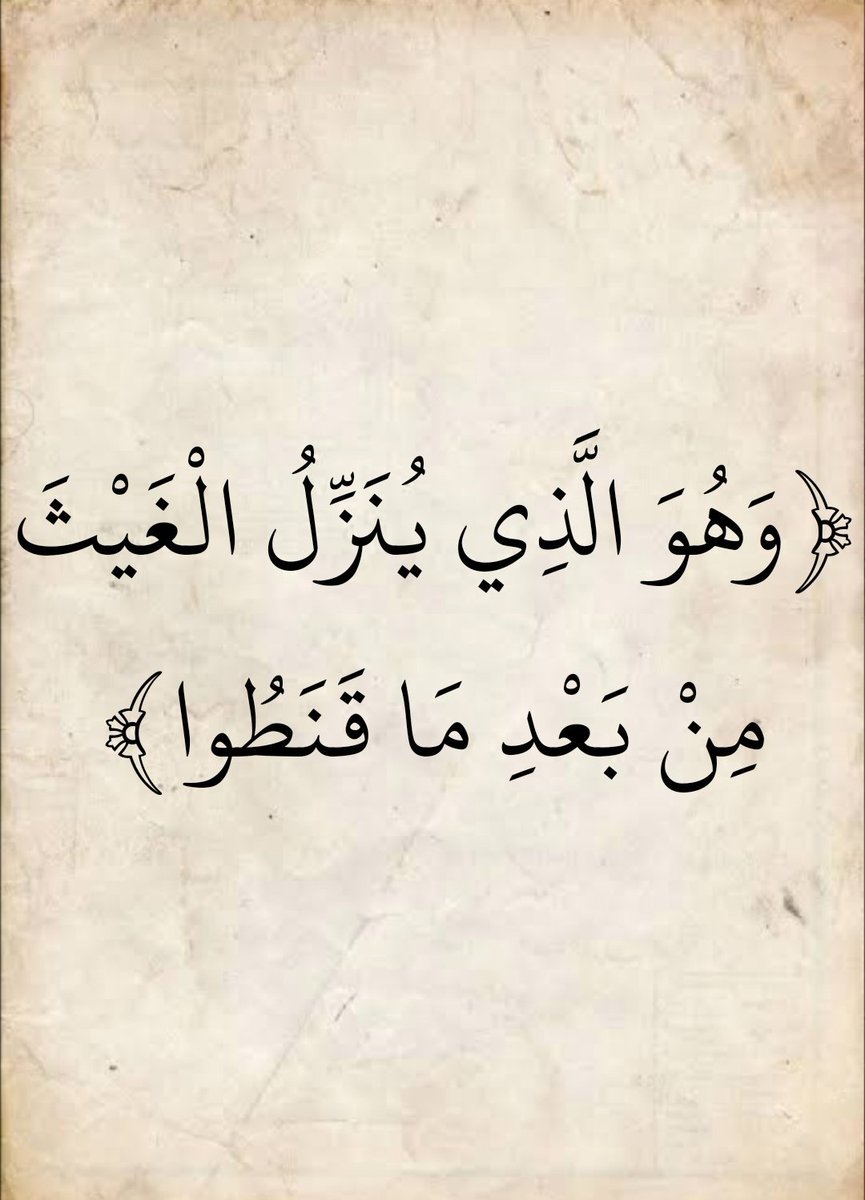 ﴿وَهُوَ الَّذِي يُنَزِّلُ الْغَيْثَ
مِنْ بَعْدِ مَا قَنَطُوا﴾